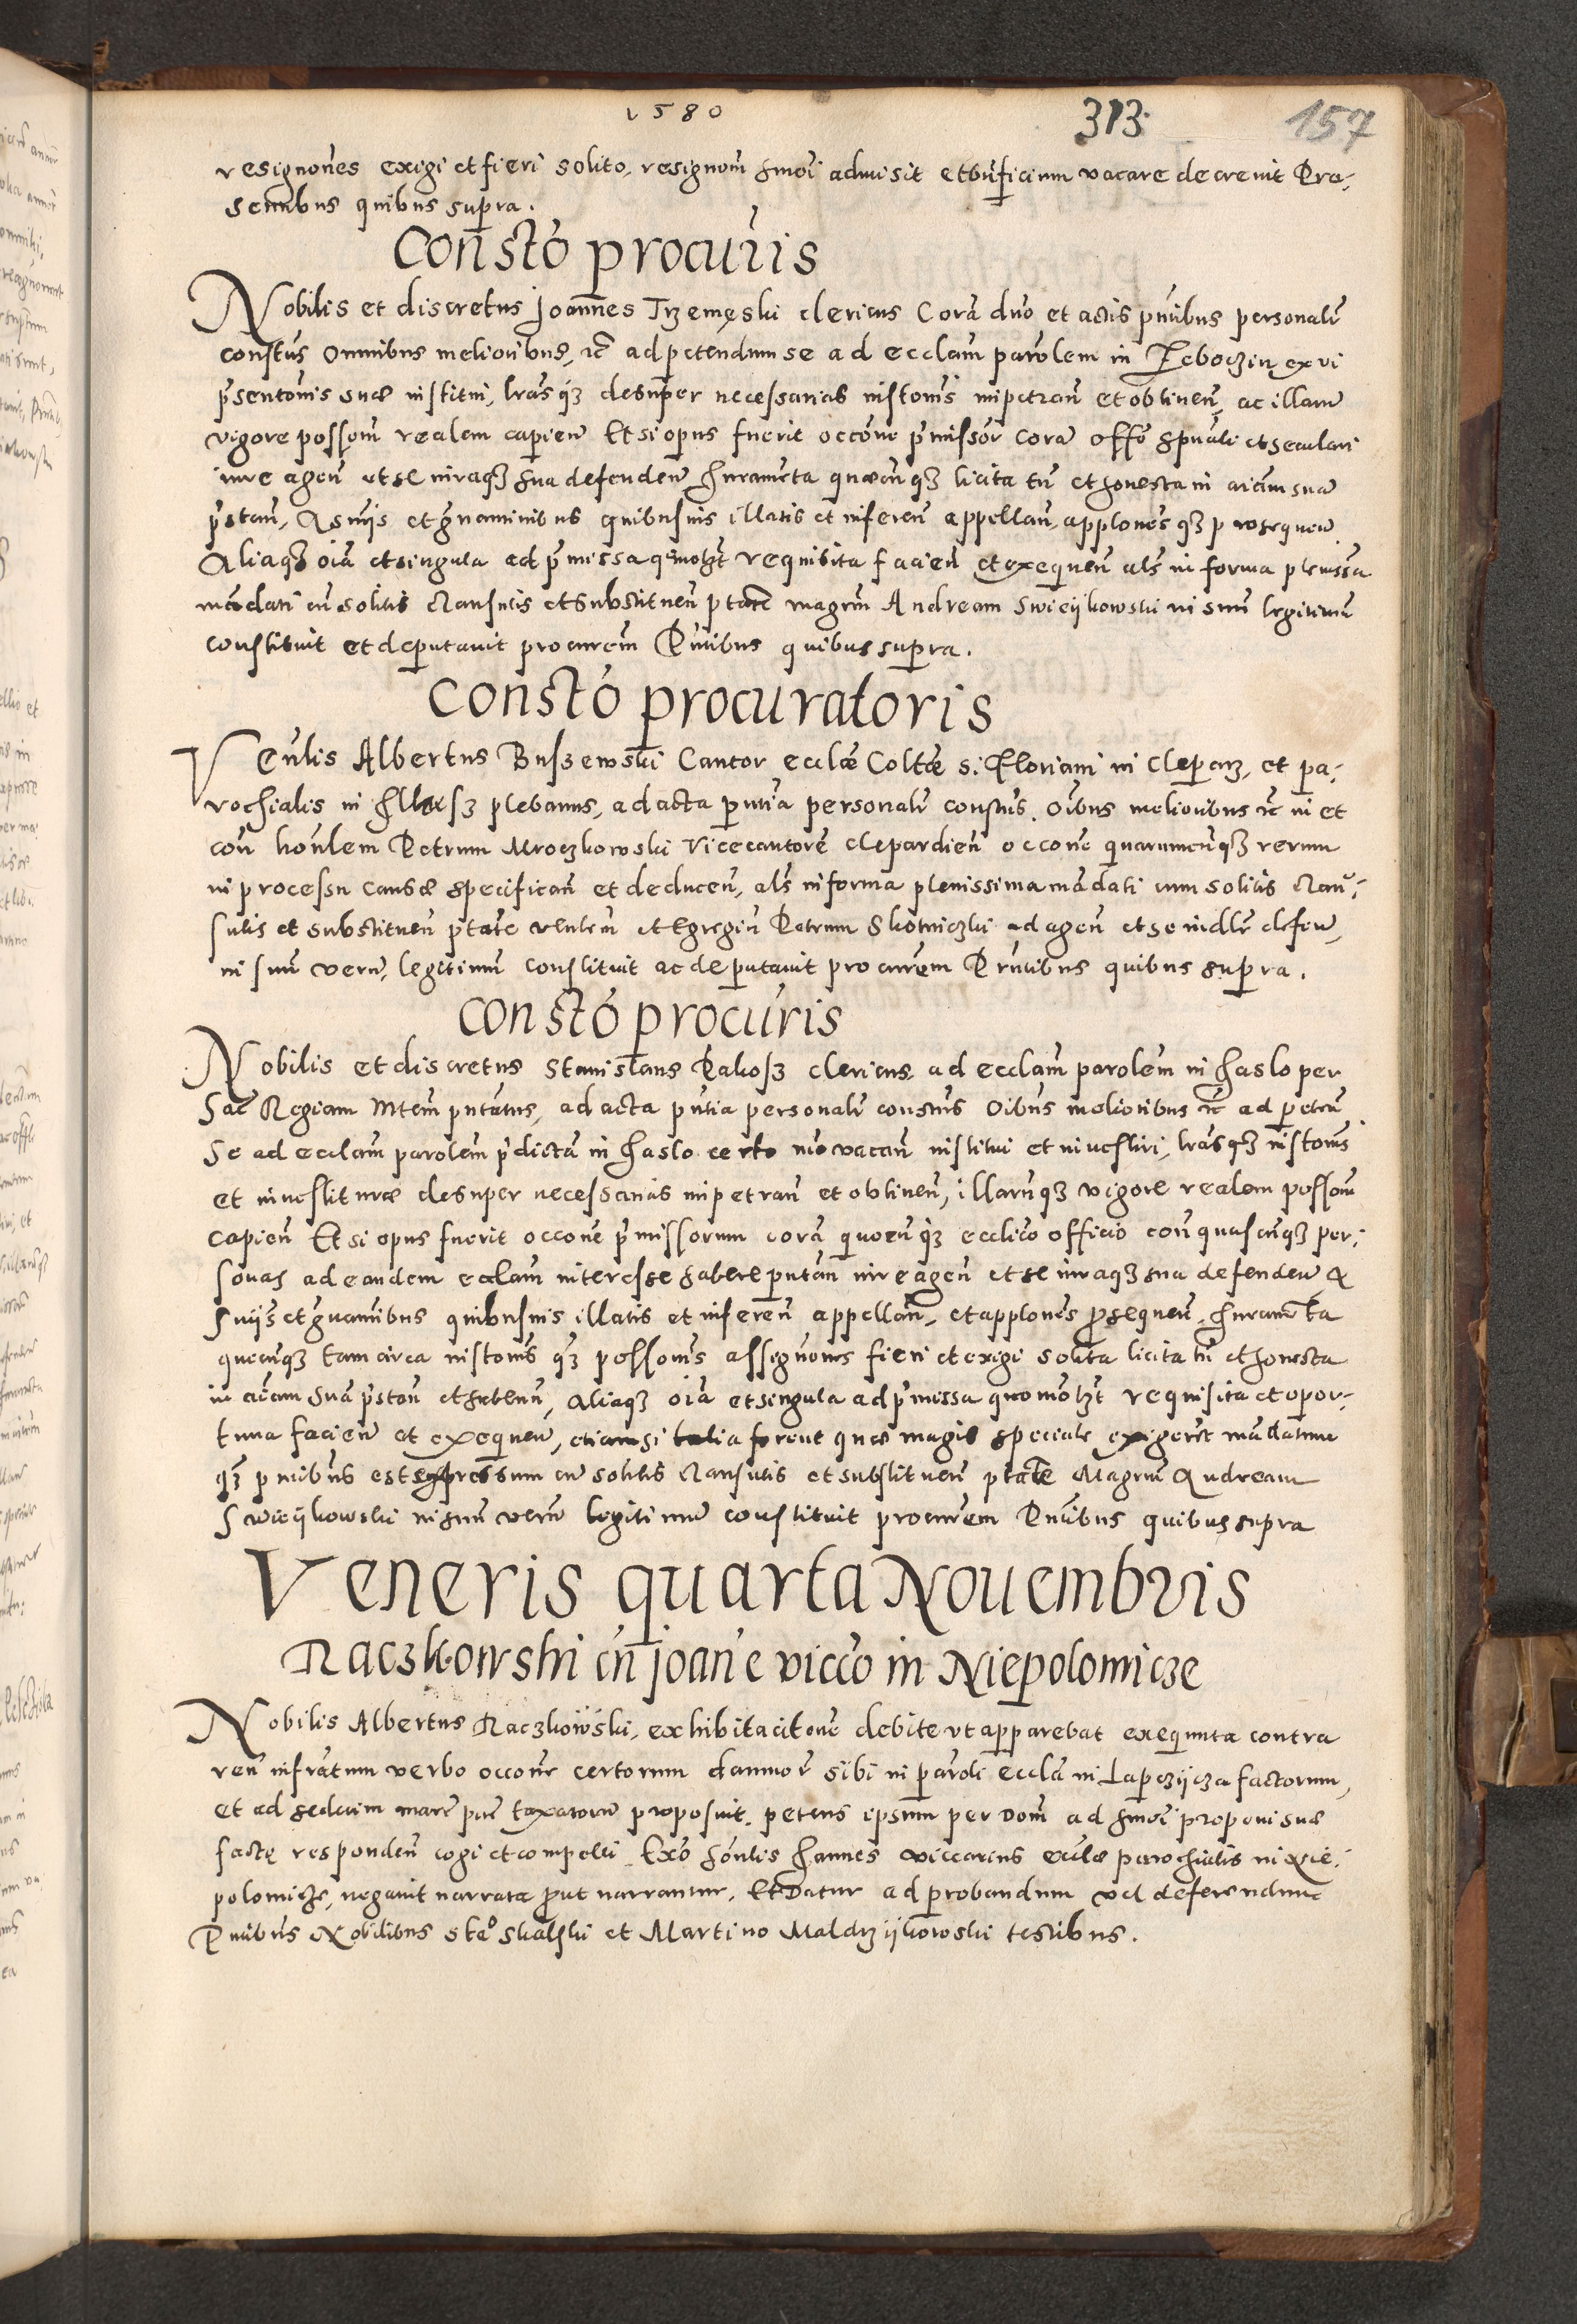 1580
313.
157
resignoñes exigi et fieri solito, resignom̃ hmõi admisit et bñficium vacare decrevit Prae-
sentibus quibus supra.
Constõ procur̃is
Nobilis et discretus Joannes Trzemęski clericus Corã dnõ et actis pñtibus personalr̃
constus̃ Omnibus melioribus, etc̃ ad petendum se ad ecclãm parolem̃ in ex vi
pr̃sentõnis suae institui, lrãs qz desuper necessarias instõnis impetrañ et obtineñ, ac illarũ
vigore possom̃ realem capieñ Et si opus fuerit occõne pr̃missor̃ corã offõ spũali et seculari
iure ageñ et se iuraqz sua defendeñ Juramẽta quaecũqz licita tñ et honesta in aĩam suã
pr̃stañ, A sñiis et grãuaminibus quibusuis illatis et infereñ appellañ, applõnes qz prosequeñ
Aliaqz oĩa et singula ad pr̃missa quomõlz̃t requisita facieñ et exequeñ als̃ in forma plenissã
mãdati cũ solitis clausulis et substitueñ ptate Magrum̃ Andream Swieijkowski in suũ legitimũ
constituit et deputauit procurem̃ Pñtibus quibus supra.
Constõ procuratoris
Veñlis Albertus Buszewski Cantor ecclae Colltae S. Floriani in Cleparz, et pa-
rochialis in plebanus, ad acta pñtia personalr̃ constus̃. Oĩbus melioribus etc̃ in et
coñ hoñlem Petrum Mroczkowski Vicecantorẽ Clepardieñ occõne quarumcũqz rerum
in processu causae specificañ et deduceñ, als̃ in forma plenissima mãdati cum solitis clau-
sulis et substitueñ ptate veñlem et Egregiũ Petrum Skotniczki ad ageñ et se defeñ,
in suũ verũ, legitimũ constituit ac deputauit procurem̃ Pñtibus quibus supra.
Constõ procur̃is
Nobilis et discretus Stanislaus Rakosz clericus, ad ecclãm parolem̃ in Jaslo per
Sac̃ Regiam Mtem̃ pñtatus, ad acta pñtia personalr̃ constus̃ Oĩbus melioribus etc̃ ad peteñ
Se ad ecclãm parolem̃ pr̃dictã in Jaslo certo mõ vacañ institui et inuestiri, lrãsqz instõnis
et inuestiturae desuper necessarias impetrañ et obtineñ, illarũqz vigore realem possom̃
capieñ Et si opus fuerit occõne pr̃missorum corã quocũqz ecclico officio coñ quascũqz per-
sonas ad eandem ecclãm interesse habere putañ iure ageñ et se iuraqz sua defendeñ A
sñiis et grãuaminibus quibusuis illatis et infereñ appellañ, et applõnes prosequeñ, Juramẽta
quecũqz tam circa instõnis qz possõnis assignõnes fieri et exigi solita licita tñ et honesta
in aĩam suã pr̃stañ et subeuñ, Aliaqz oĩa et singula ad pr̃missa quomõlz̃t requisita et opor-
tuna facieñ et exequeñ, etiamsi talia forent quae magis speciale exigerẽt mãdatum
qz pñtibus est expressum cũ solitis clausulis et substitueñ ptate Magrum̃ Andream
Swieijkowski in suũ verũ legitimũ constituit procurem̃ Pñtibus quibus supra
Veneris quarta Nouembris
Raczkowski cũ Joañe viccõ in Niepolomicze
Nobilis Albertus Raczkowski, exhibita citõne debite vt apparebat exequuta contra
reũ infrãtum verbo occõne certorum damnor̃ sibi in paroli ecclã in Lapczijcza factorum,
et ad marc̃ taxatorũ proposuit, petens ipsum per Dom̃ ad hmõi propõni suae
factę respondeñ cogi et compelli Exõ hoñlis Joannes viccarius ecclae parochialis in Nie-
polomicze, negauit narrata prout narrantur, Et Datur ad probandum vel deferendum
Pñtibus Nobilibus Stão Skalski et Martino Maldrzijkowski testibus.